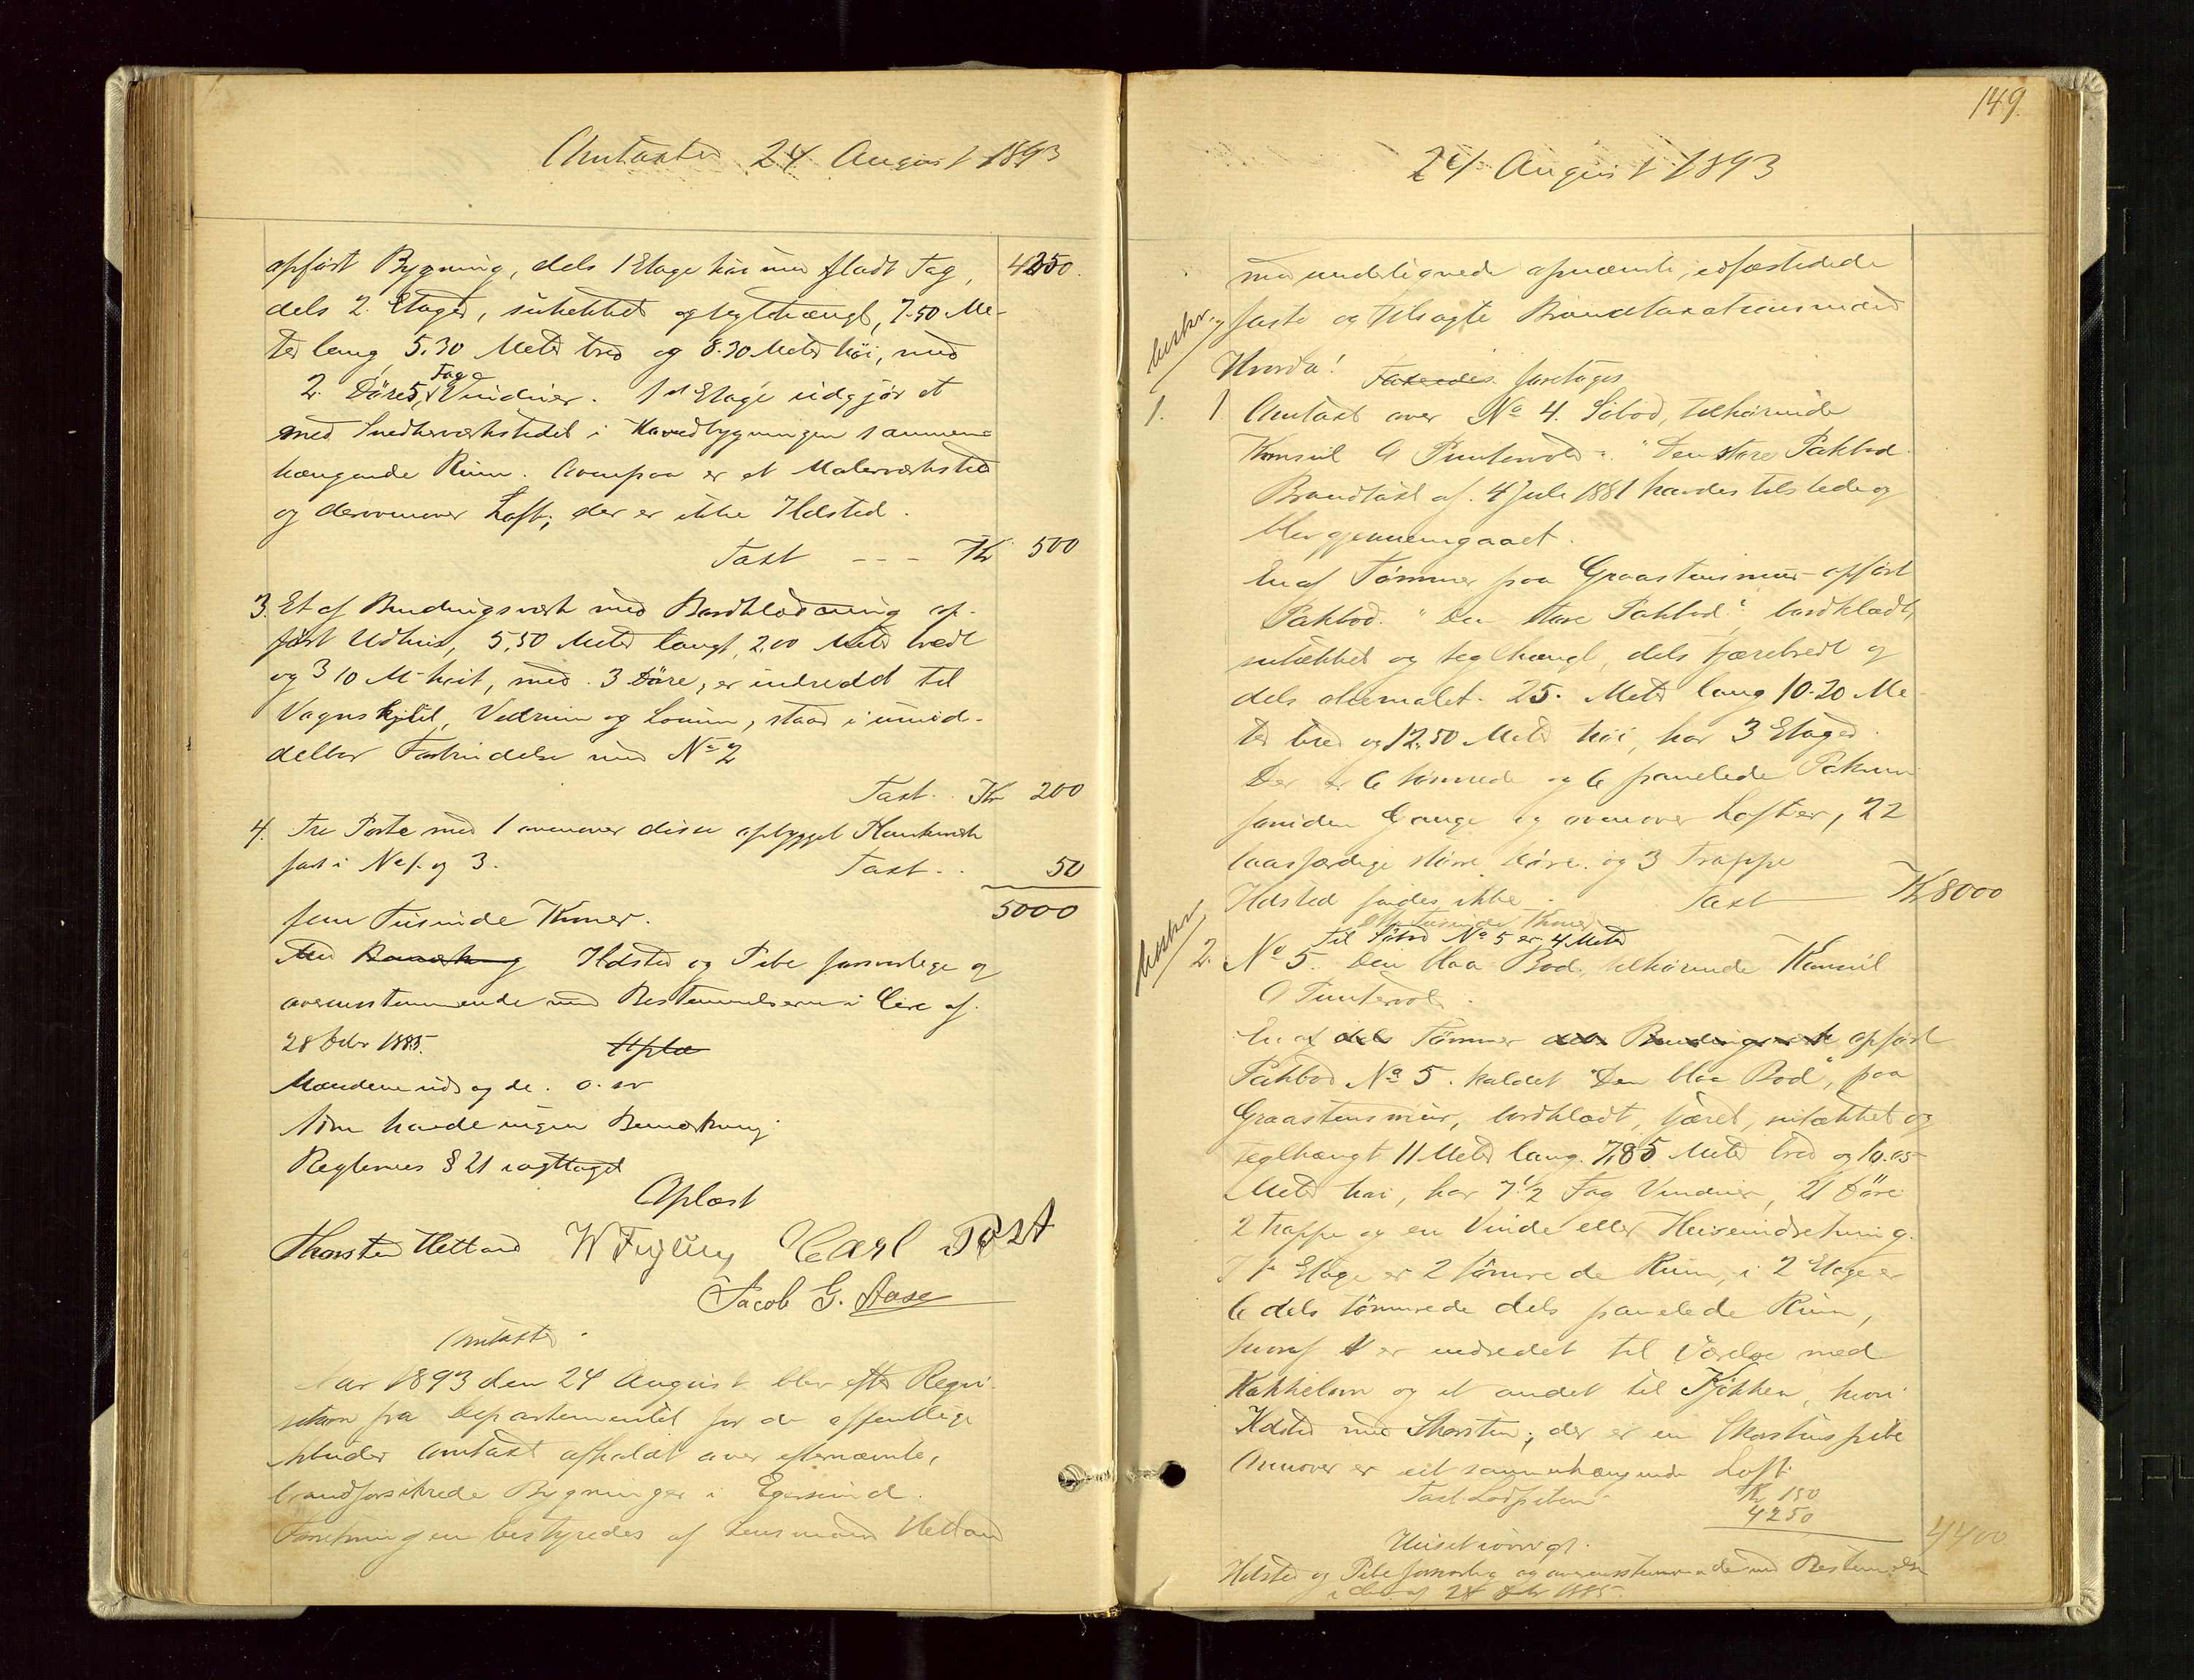 Omtaxter 24 August 1893
opført Bygning, dels 1 Etage höi med fladt Tag, 4250.
dels 2 Etager, sutækket og teglhængt, 7.50 Me-
ter lang 5.30 Meter bred og 8.30 Meter höi, med
2 Döre, 5 Fag Vinduer. 1st Etage udgjør et
med Snedkerværkstedet i Hovedbygningen sammen-
hængende Rum. Ovenpaa er et Malerværksted
og derovenover Loft; der er ikke Ildsted.
Taxt - - - Kr 500
3. Et af Bindingsværk med Bordklædning op-
ført Udhus, 5,50 Meter langt, 2,00 Meter bredt
og 3 10 M höit, med 3 Döre, er indredet til
Vognskjul, Vedrum og Lorum, staar i umid-
delbar Forbindelse med No 2
Taxt. Kr 200
4. Tre Porte med 1 ovenover disse opbygget Plankeværk
fast i No 1. og 3. Taxt. . 50
5000
fem Tusinde Kroner.
Med Bemærkning Ildsted og Pibe forsvarlige og
overensstemmende med Bestemmelserne i Circ af
28 Oebr 1885. Oplæ
Mændene udsagde. o. sv
Som havde ingen Bemærkning
Reglernes § 21 iagttaget
Oplæst
Thorsten Hetland W Feyling Carl Post
Jacob G. Aase
Omtaxter.
Aar 1893 den 24 August blev efter Requi-
sition fra Departementet for de offentlige
Arbeider Omtaxt afholdt over efternævnte,
brandforsikrede Bygninger i Egersund.
Forretningen bestyredes af Lensmand Hetland
149.
24 August 1893
med undertegnede opnævnte, edfæstede
faste og tilsagte Brandtaxationsmænd
Hvorda! Taxeredes foretoges
beskr.
1. 1. Omtaxt over No 4. Söbod, tilhørende
Konsul O Puntervold: "Den store Pakbod
Brandtaxt af 4 Juli 1881 havdes tilstede og
blev gjennemgaaet.
En af Tømmer paa Graastensmur opført
Pakbod. "Den store Pakbod", bordklædt,
sutækket og teglhængt, dels tjærebredt og
dels oliemalet. 25. Meter lang 10.20 Me-
ter bred og 12,50 Meter höi, har 3 Etager.
Der er 6 tømrede og 6 panelede Pakrum
foruden Gange og ovenover Lofter, 22
laasfærdige større Döre og 3 Trappe
Ildsted findes ikke. Taxt Kr 8000
Otte Tusinde Kroner
Til Söbod No 5 er 4 Meter
beskr.
2. No 5. Den blaa Bod, tilhørende Konsul
O Puntervold.
En af dels Tømmer dels Bindingsværk opført
Pakbod No 5. kaldet "Den blaa Bod", paa
Graastensmur, bordklædt, tjæret, sutækket og
teglhængt 11 Meter lang. 7,85 Meter bred og 10.05
Meter höi, har 7 1/2 Fag Vinduer, 21 Döre
2 Trappe og en Vinde eller Heiseindretning.
I 1st Etage er 2 tømrede Rum, i 2 Etage er
6 dels tømrede dels panelede Rum,
hvoraf 1 er indredet til Værelse med
Kakkelovn og et andet til Kjøkken, hvori
Ildsted med Skorsten; der er en Skorstenspibe
Ovenover er eet sammenhængende Loft.
Taxt Kr 150
4250
4400
Huset iøvrigt.
Ildsted og Pibe forsvarlig og overensstemmende med Bestemmelse
i Circ af 28 Oebr 1885.